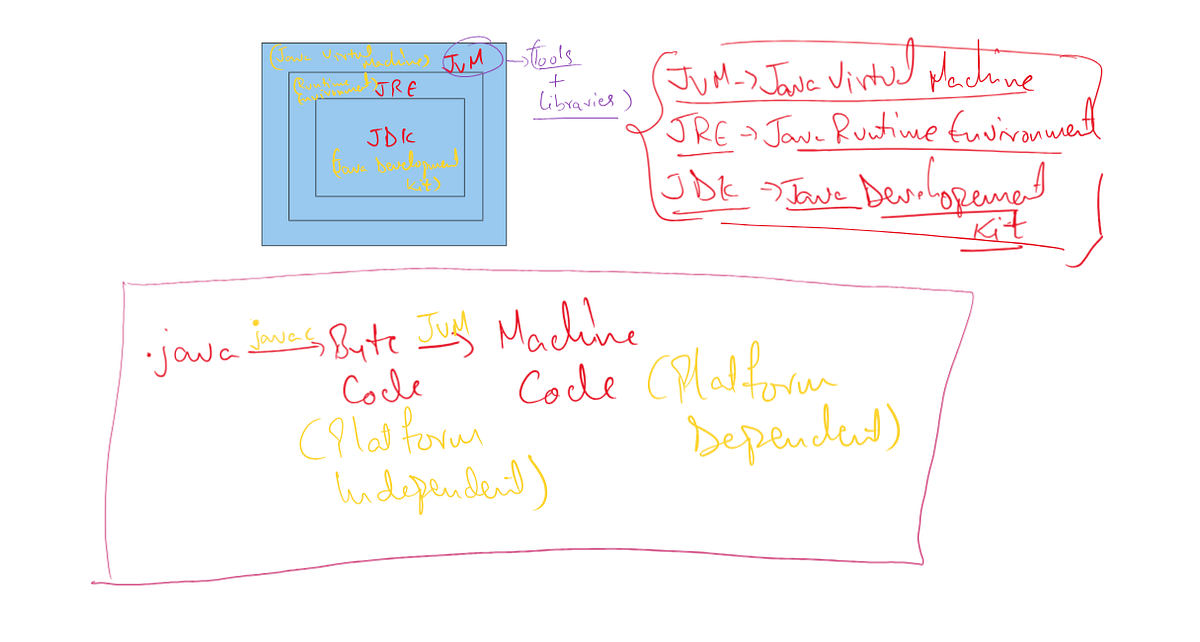 (Java Virtual
Machine)
JVM
→ (Tools
+
Libraries)
(Runtime
Environment)
JRE
JDK
(Java Development
Kit)
JVM → Java Virtual Machine
JRE → Java Runtime Environment
JDK → Java Developement
Kit
.java javac → Byte JVM → Machine
Code Code (Platform
(Platform Dependent)
Independent)